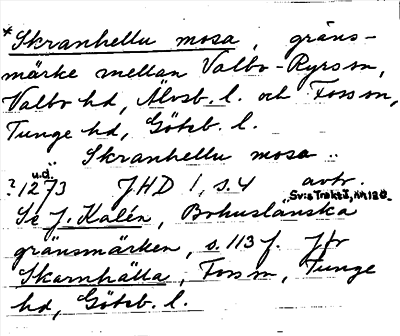 *Skranhellu mosa, gräns-
märke mellan Valbo-Ryrs sn,
Valbo hd, Älvsb. l. och Foss sn,
Tunge hd, Göteb. l.
Skranhellu mosa ..
u.d.
?1273 JHD 1, s. 4 avtr.
"Sv:s Trakt I, nr 120.
Se J. Kalén, Bohuslänska
gränsmärken, s. 113 f. Jfr
Skarnhälla, Foss sn, Tunge
hd, Göteb. l.